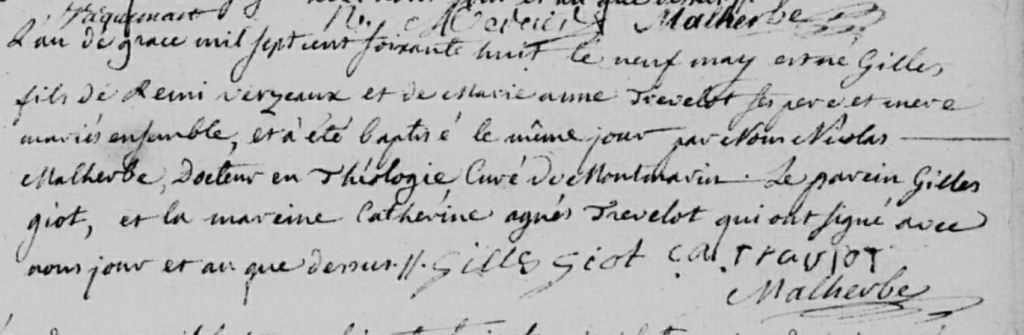 Paquenast Malherbe
L'an de grace mil sept cent soixante huit le neuf may est né Gilles
fils de Remi verzeaux et de Marie anne Trevelot ses pere et mere
mariés ensemble, et à été baptisé le même jour par Nous Nicolas
Malherbe, Docteur en Théologie Curé du Montmarin. Le parein Gilles
giot, et la mareine Catherine agnés Trevelot qui ont signé avec
nous jour et an que dessus //. Gilles Giot
Malherbe